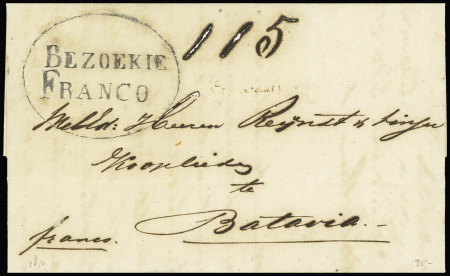 BEZOEKIE
FRANCO
115
Heeren Reynst &
Kooplieden
te
Batavia.
franco.
35-